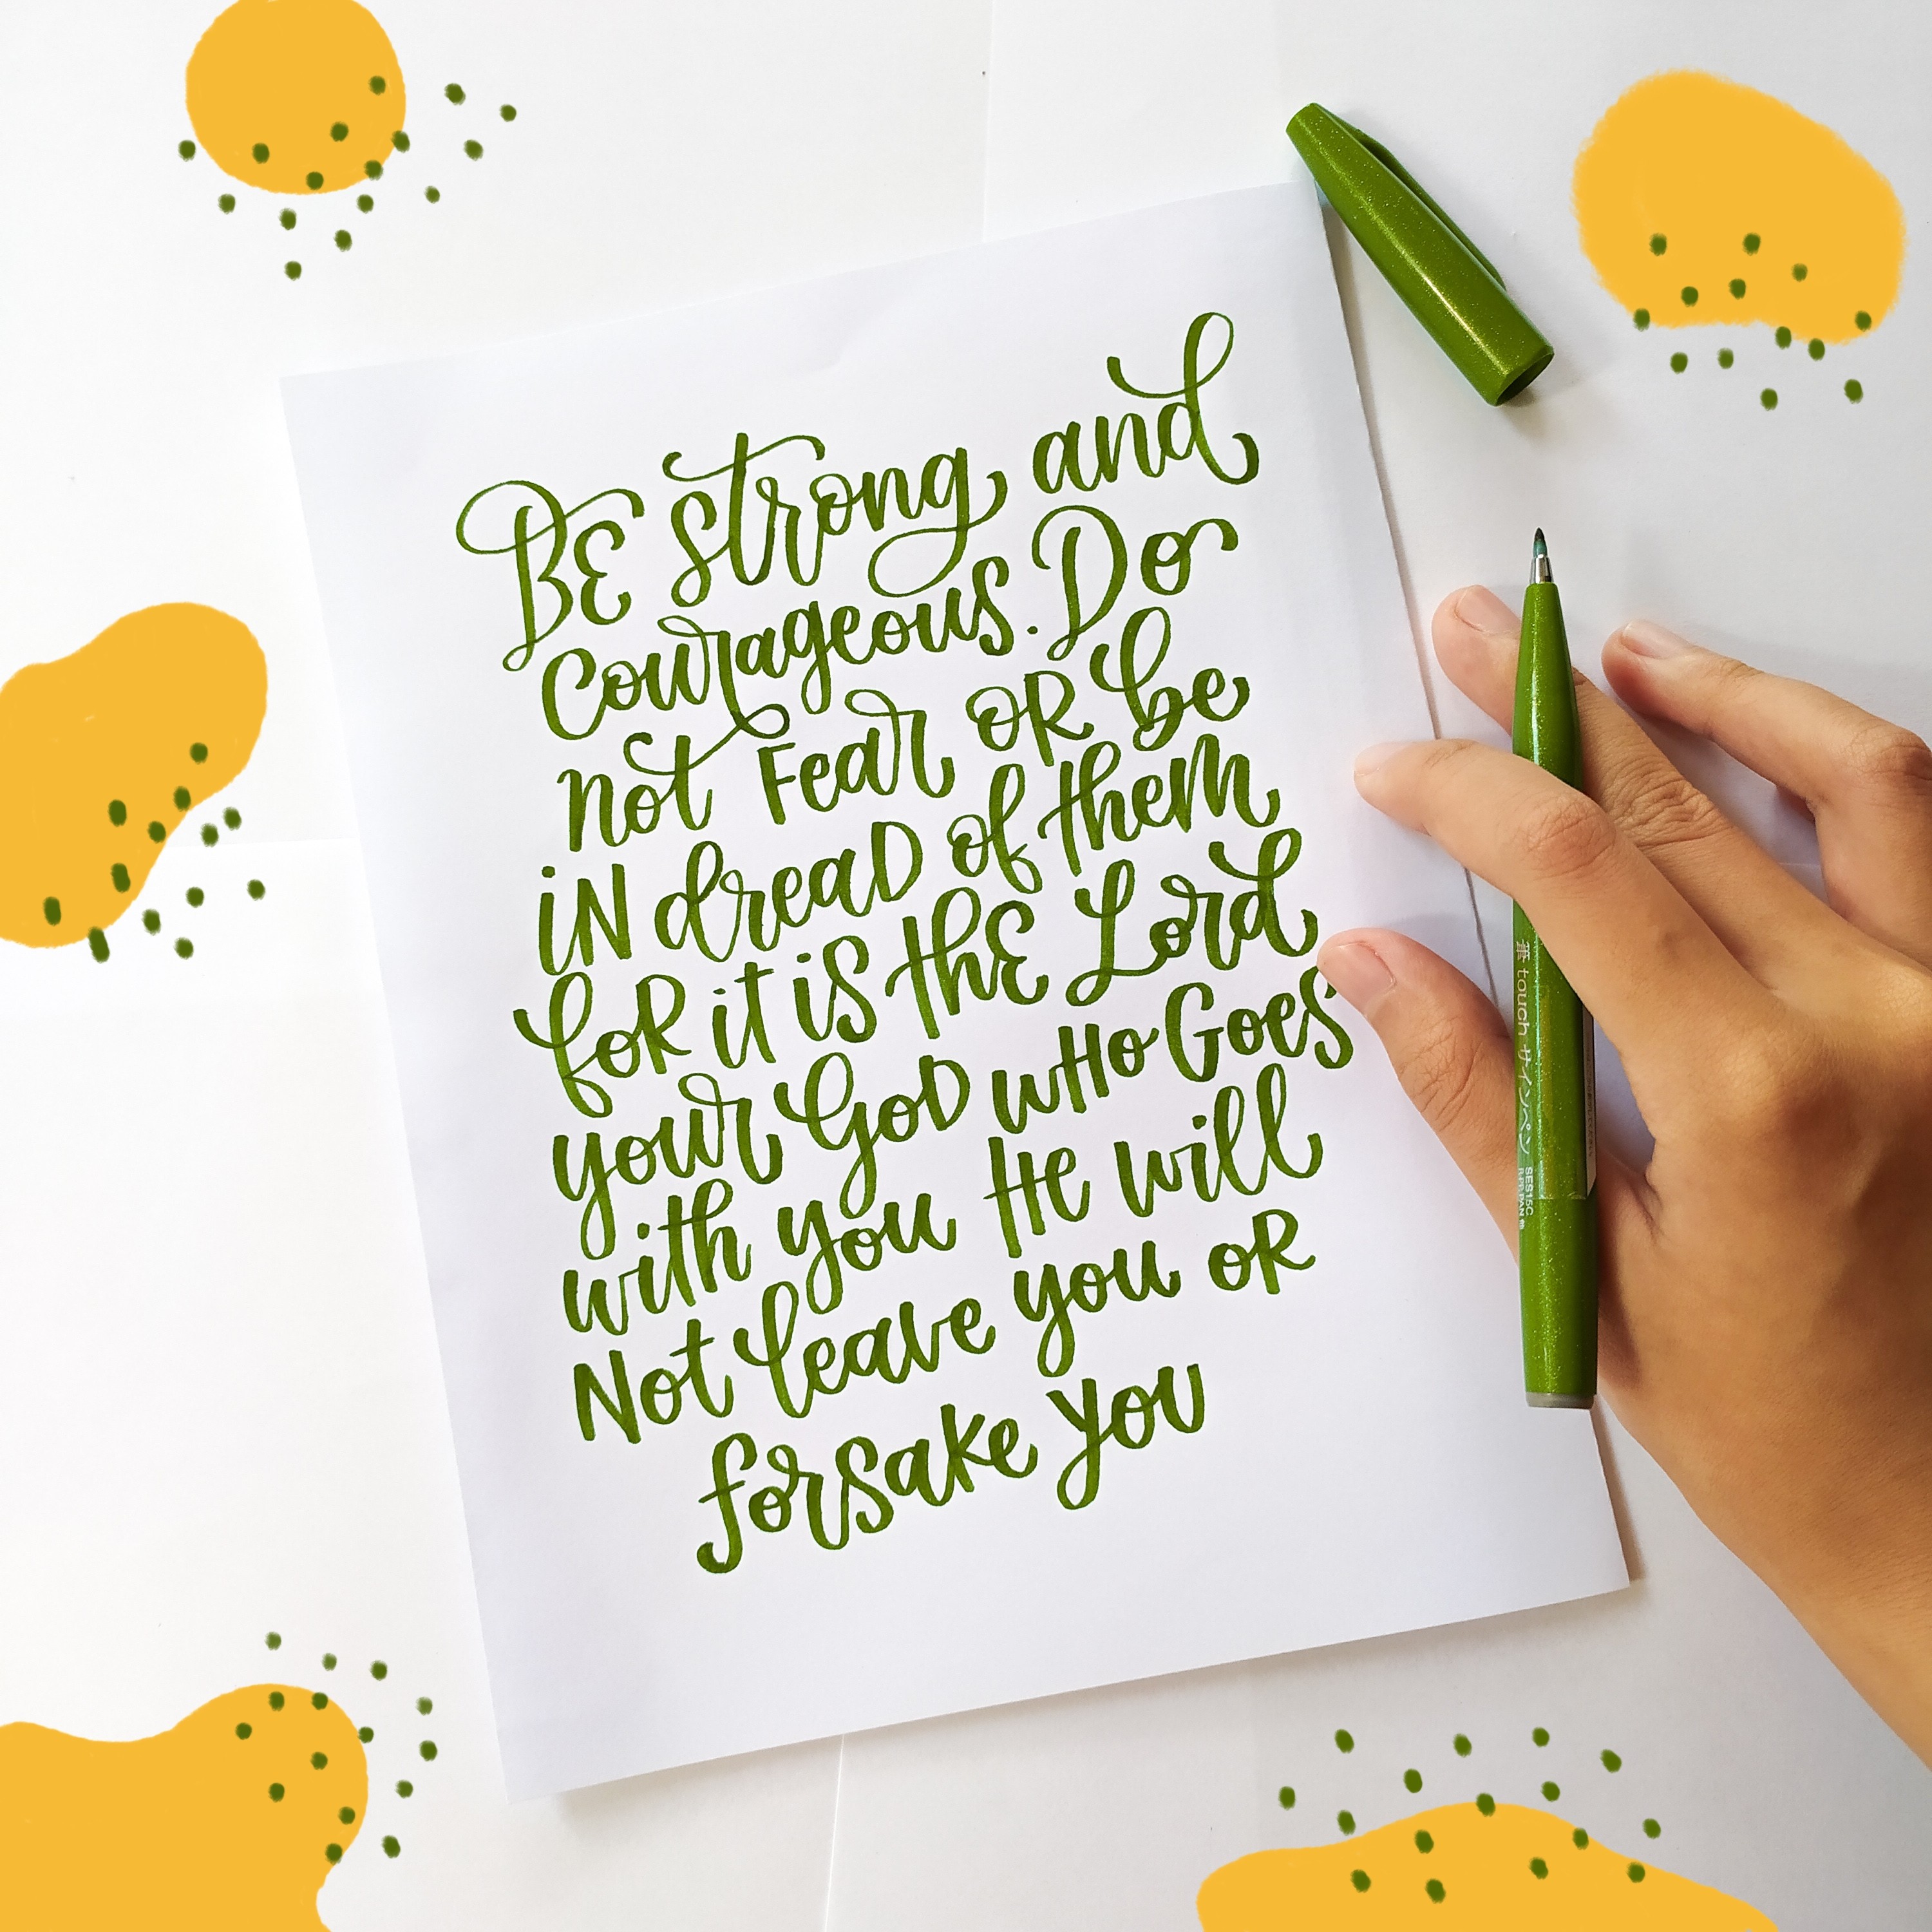 BE strong and
Courageous. Do
not Fear OR be
iN dreaD of them
foR it is thE Lord
your GoD wHo Goes
with you He will
Not leave you oR
forsake You
筆 touch サインペン
SES15C